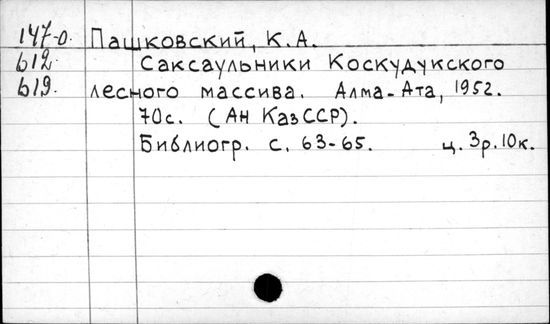 147-о. Пашковский, К.А.
612 Саксаульники Коскудукского
619. лесного массива. Алма-Ата, 1952.
70с. (Ан КазССР).
Библиогр. с. 63-65. ц. 3р.10к.